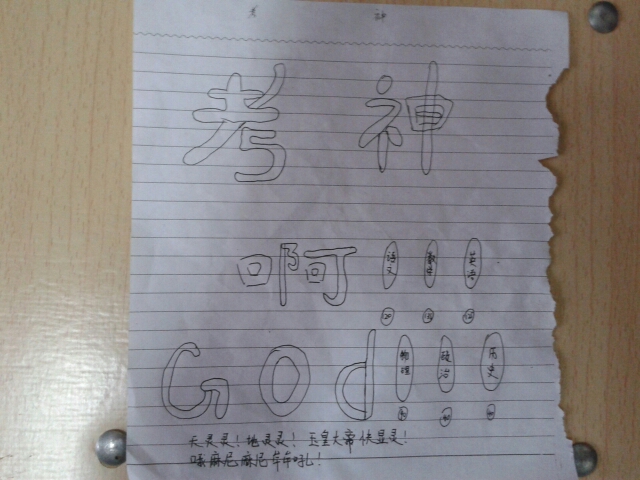 考 神
考 神
啊 语文 数学 英语
God 物理 政治 历史
天灵灵！地灵灵！玉皇大帝快显灵！
嘛尼嘛尼